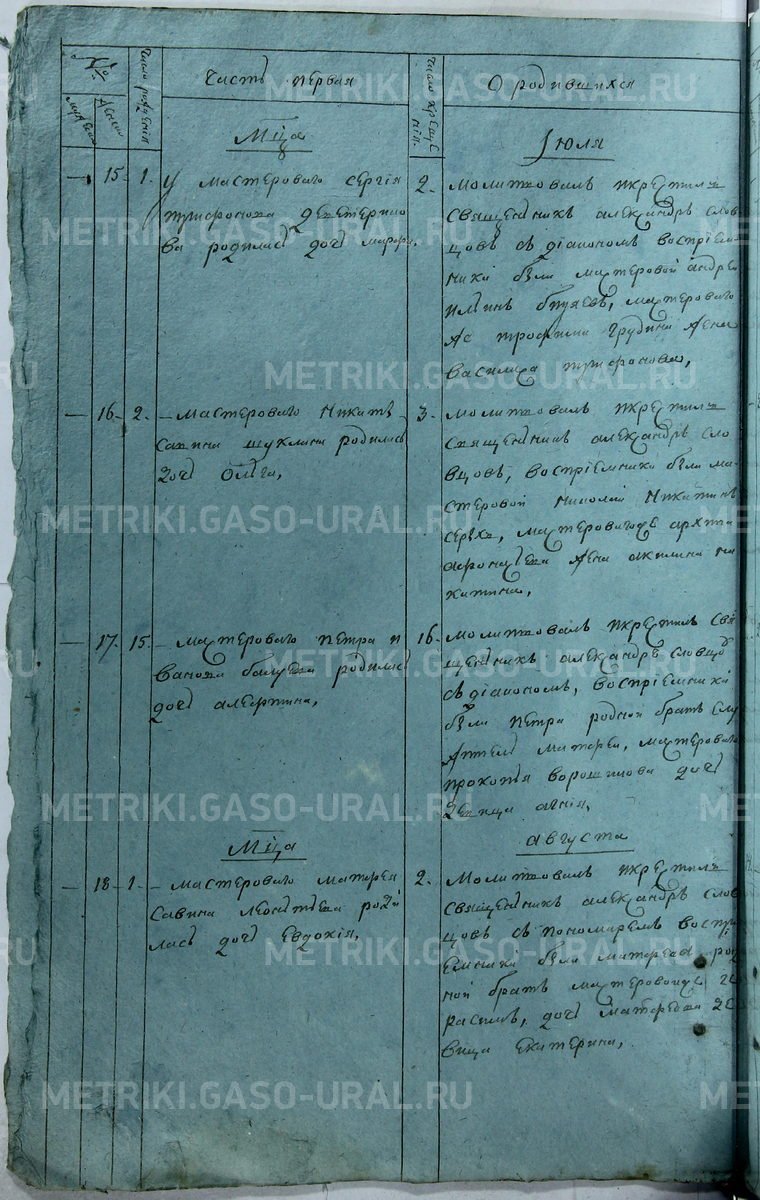 №
мужеска
женска
Число рожденiя
Часть первая
Число креще
нiя
О родившихся
Мц҃а
Iюля
15. 1. У мастероваго Сергiя
родилась дочь Марфа.
2. Молитвовалъ и крестилъ
священникъ Александръ Слов
цовъ съ дiакономъ воспрiем-
ники были мастеровой Андрей
мастероваго
же Трофима Грудина жена
Василиса
16. 2. мастероваго Никиты
Савина Шуклина родилась
дочь Ольга,
3. Молитвовалъ и крестилъ
священникъ Александръ Сло
вцовъ, воспрiемники были ма-
стеровой Николай Никитинъ
мастероваго же
жена Акилина Ни
китина,
17. 15. мастероваго Петра И
ванова родилась
дочь Алефтина,
16. Молитвовалъ и крестилъ свя
щенникъ Александръ Словцовъ
съ дiакономъ, воспрiемники
были Петра родной братъ слу
житель Матфей, мастероваго
Прокопья Ворошилова дочь
девица Агнiя,
Мц҃а
Августа
18. 1. мастероваго Матфея
Савина Леонтьева роди
лась дочь Евдокiя,
2. Молитвовалъ и крестилъ
священникъ Александръ Слов
цовъ съ пономаремъ воспрi
емники были Матфея род
ной братъ мастеровой же Ге
расимъ, дочь Матфеева де
вица Екатерина,
METRIKI.GASO-URAL.RU